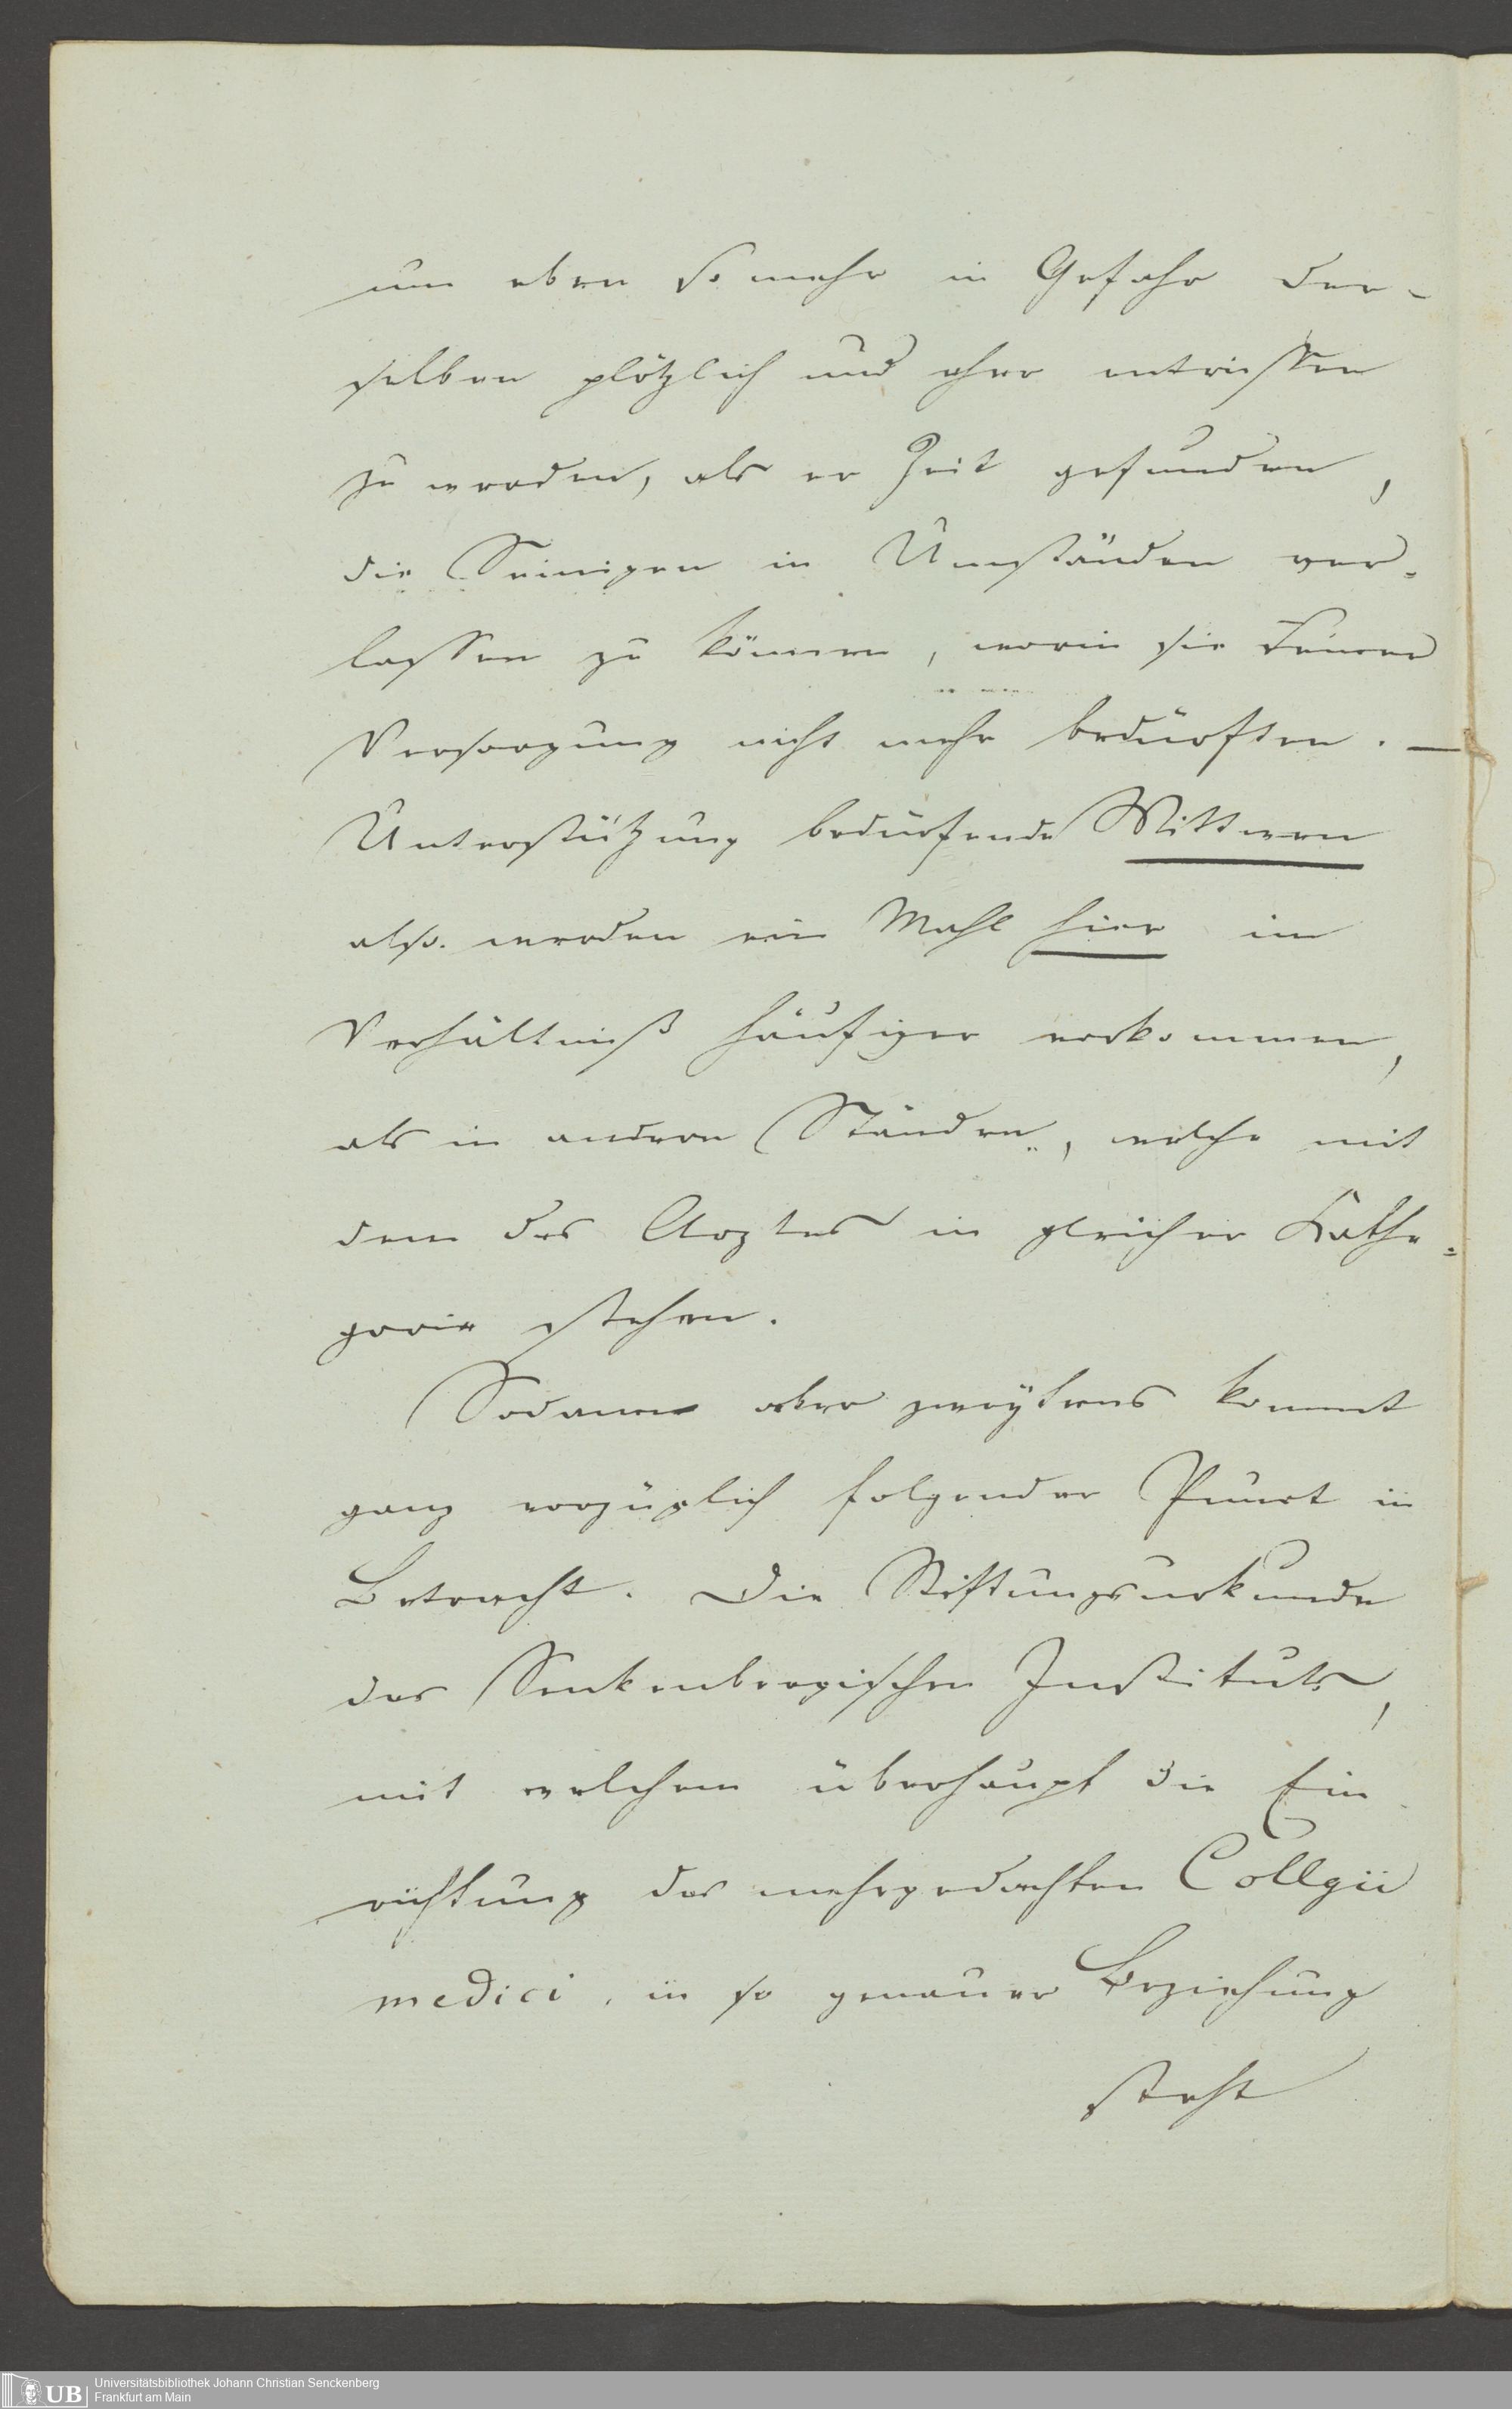 um eben so mehr in Gefahr der-
selben plötzlich und eher entrissen
zu werden, als er Zeit gefunden,
die Seinigen in Umständen ver-
lassen zu können, worin sie seiner
Versorgung nicht mehr bedürften. —
Unterstützung bedürfende Wittwen
also werden ein Mahl hier im
Verhältniß häufiger vorkommen,
als in andern Ständen, welche mit
dem des Arztes in gleicher Kathe-
gorie stehen.
Sodann aber zweytens kommt
ganz vorzüglich folgender Punct in
Betracht. Die Stiftungsurkunde
des Senkenbergischen Instituts,
mit welchem überhaupt die Ein
richtung des mehrgedachten Collgii
medici, in so genauer Beziehung
steht
UB
Universitätsbibliothek Johann Christian Senckenberg
Frankfurt am Main